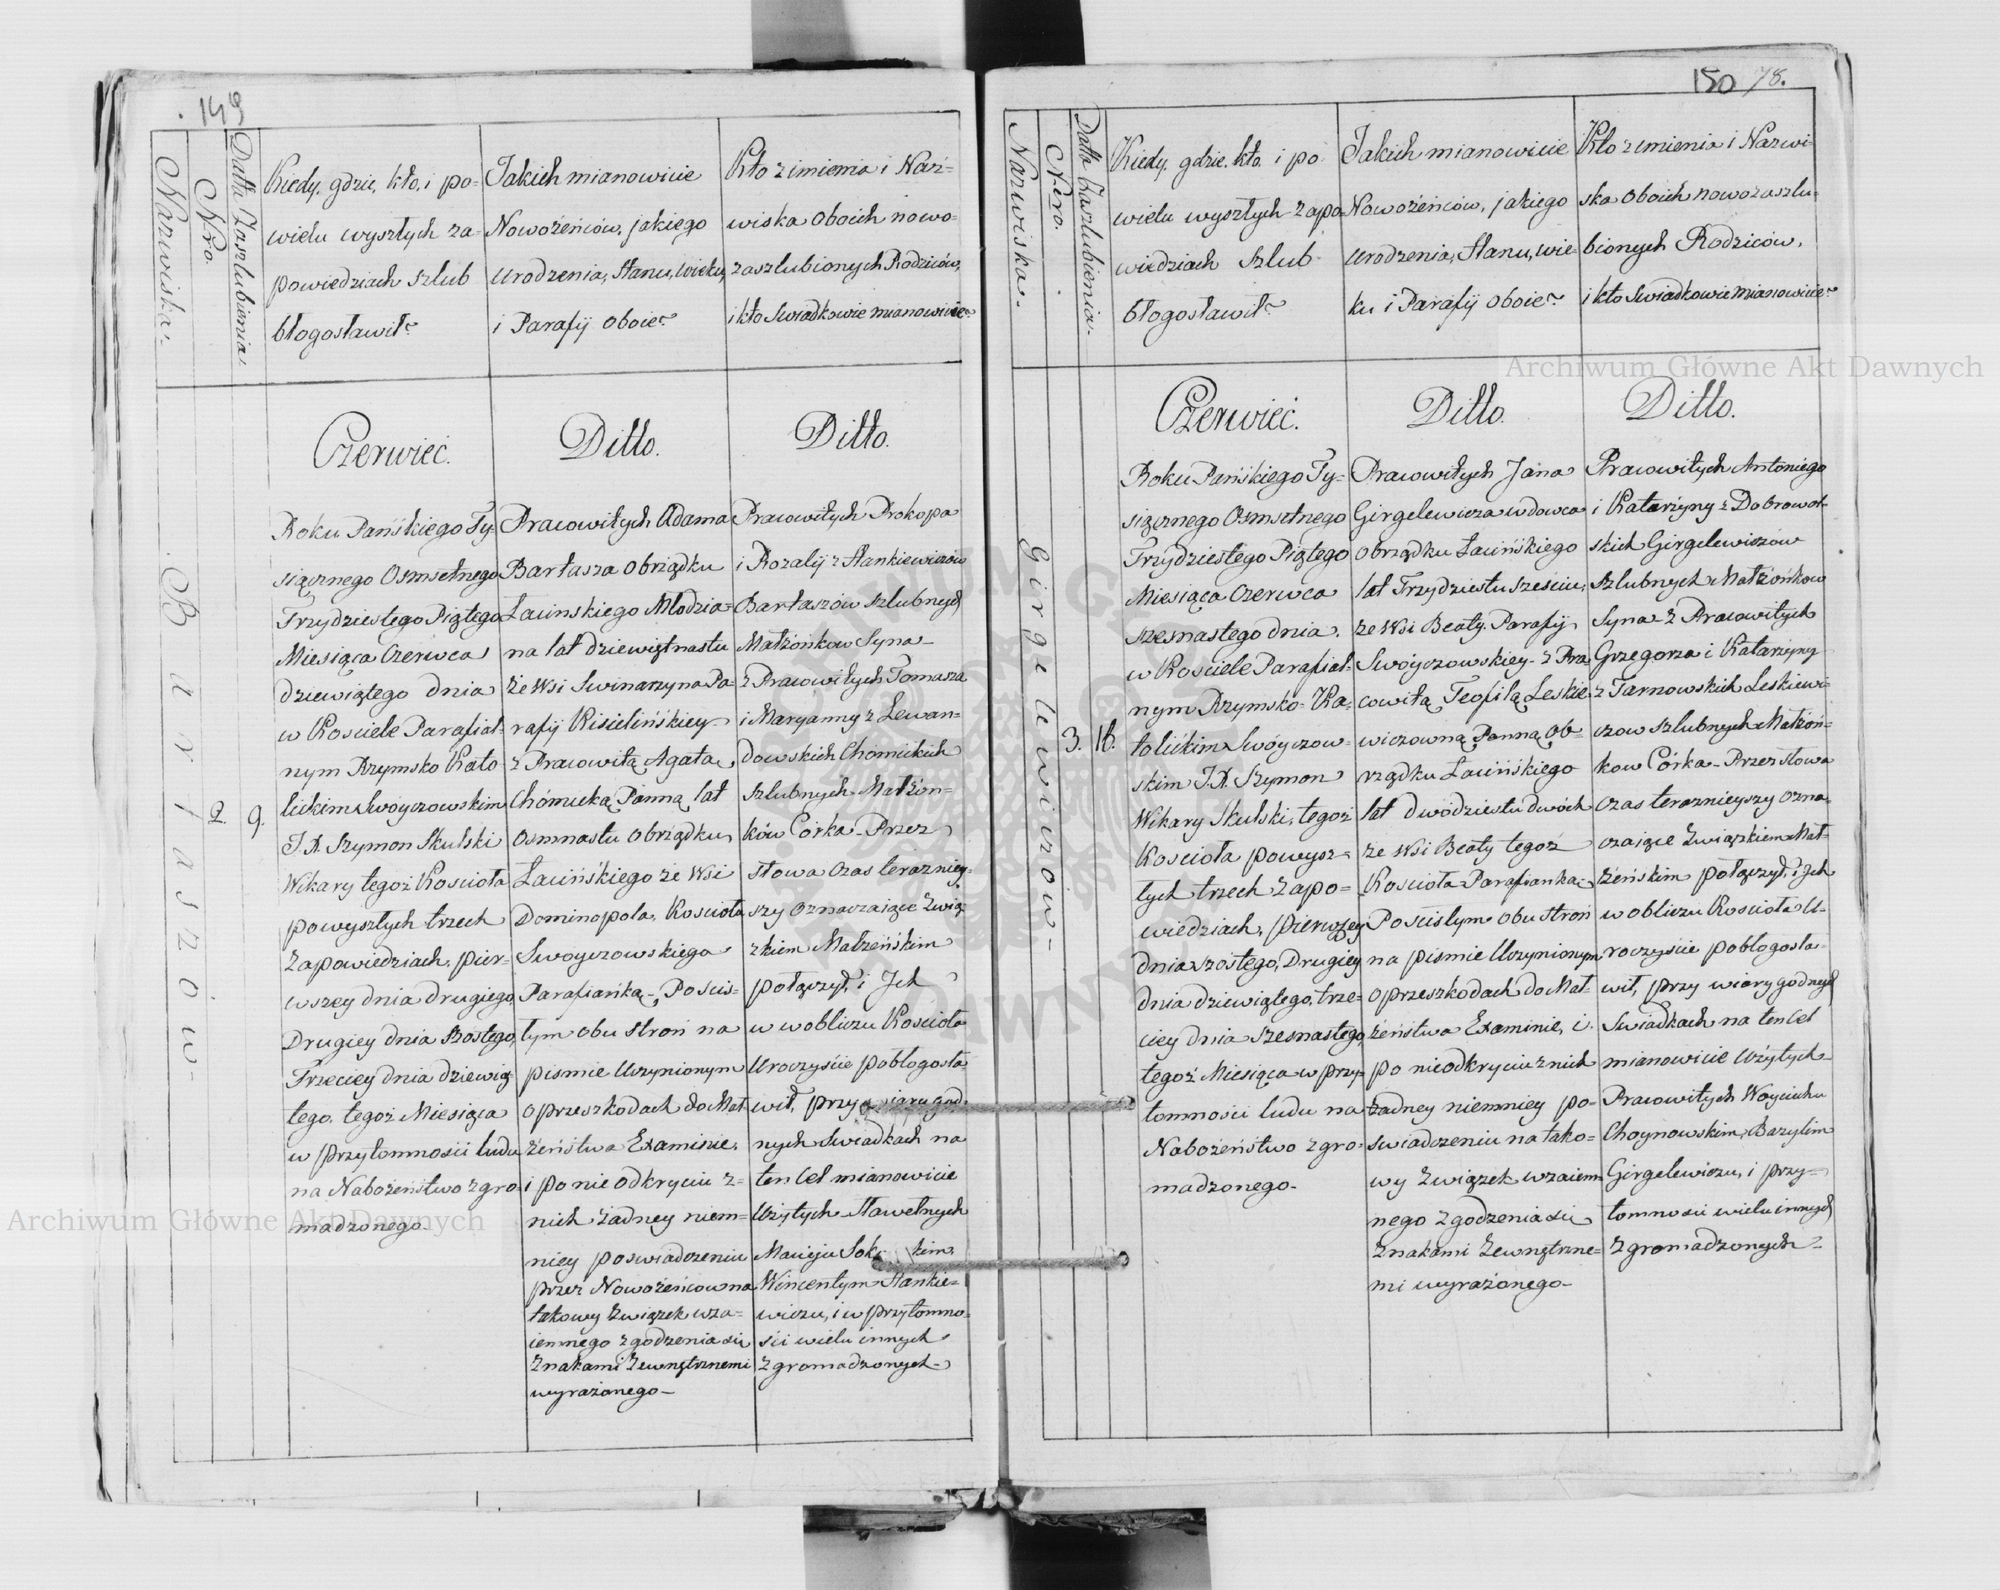 149
Nazwiska.
Nro.
Datta Zaszlubienia.
Kiedy, gdzie, kto, i po-
wielu wyszłych za-
powiedziach szlub
błogosławił?
Jakich mianowicie
Nowożeńców, jakiego
urodzenia, stanu, wieku,
i Parafij oboie?
Kto z imienia i Naz-
wiska oboich nowo-
zaszlubionych Rodziców,
i kto Swiadkowie mianowicie?
Bartaszów-
2.
9.
Czerwiec.
Roku Pańskiego Ty-
siącznego Osmsetnego
Trzydziestego Piątego
Miesiąca Czerwca
dziewiątego dnia
w Kosciele Parafial-
nym Rzymsko Kato-
lickim Swóyczowskim
J.X. Szymon Skulski
Wikary tegoż Koscioła
powyszłych trzech
Zapowiedziach, pier-
wszey dnia drugiego,
Drugiey dnia Szostego,
Trzeciey dnia dziewią-
tego, tegoż Miesiąca
w przytomnosci ludu
na Nabożeństwo zgro-
madzonego.
Ditto.
Pracowitych Adama
Bartasza obrządku
Łacinskiego Młodzia-
na lat dziewiętnastu
że Wsi Swinarzyna Pa-
rafij Kisielińskiey-
z Pracowitą Agatą
Chómicką Panną lat
osmnastu obrządku
Łacińskiego że Wsi
Dominopola, Kosciola
Swoyczowskiego
Parafianką-, Poscis-
łym obu stroń na
pismie Uczynionym
o przeszkodach do Mał-
żeństwa Examinie,
i po nie odkryciu z-
nich żadney niem-
niey poswiadczeniu
przez Nowożeńcow na
takowy związek wza-
iemnego zgodzenia się
Znakami Zewnętrznemi
wyrażonego-
Ditto.
Pracowitych Prokopa
i Rozalij z Stankiewiczów
Bartaszów szlubnych
Małżonkow Syna-
z Pracowitych Tomasza
i Maryanny z Lewan-
dowskich Chomickich
szlubnych Małżon-
ków Córka- Przez
słowa czas terazniey-
szy oznaczaiące Zwią-
zkiem Małżeńskim
połączył, i Ich
w wobliczu Kosciola
Uroczyście pobłogosła-
wił, przy wiarygod-
nych Swiadkach na
ten cel mianowicie
Użytych Sławetnych
Macieju
Wincentym Stankie-
wiczu, i w przytomno-
ści wielu innych
zgromadzonych-
150 78.
Nazwiska.
Nero.
Datta Zaszlubienia.
Kiedy, gdzie, kto, i po
wielu wyszłych zapo-
wiedziach szlub
błogosławił?
Jakich mianowicie
Nowożeńców, jakiego
urodzenia, stanu, wie-
ku i Parafij oboie?
Kto z imienia i Nazwi-
ska oboich nowozaszlu-
bionych Rodziców,
i kto Swiadkowie mianowicie?
Girgelewiczow-
3.
16.
Czerwiec.
Roku Pańskiego Ty-
siącznego Osmsetnego
Trzydziestego Piątego
Miesiąca Czerwca
szesnastego dnia,
w Kosciele Parafial-
nym Rzymsko-Ka-
tolickim Swóyczow-
skim J.X. Szymon
Wikary Skulski, tegoż
Kosciola powysz-
łych trzech Zapo-
wiedziach, pierwszey
dnia szostego, Drugiey
dnia dziewiątego, trze-
ciey dnia szesnastego,
tegoż Miesiąca w przy-
tomności ludu na
Nabożeństwo zgro-
madzonego-
Ditto.
Pracowitych Jana
Girgelewicza wdowca
obrządku Łacińskiego
lat Trzydziestu sześciu,
że Wsi Beaty, Parafij
Swóyczowskiey- z Pra-
cowitą Teofilą Leskie-
wiczowną Panną Ob-
rządku Łacińskiego
lat dwódziestu dwóch
że Wsi Beaty tegoż
Kosciola Parafianką;
Poscisłym obu stroń
na pismie Uczynionym
o przeszkodach do Mał-
żeństwa Examinie, i
po nieodkryciu z nich
żadney niemniey po-
swiadczeniu na tako-
wy Związek wzaiem-
nego zgodzenia się
Znakami Zewnętrzne-
mi wyrażonego-
Ditto.
Pracowitych Antoniego
i Katarzyny z Dobrowol-
skich Girgelewiczow
szlubnych Małżonkow
Syna z Pracowitych
Grzegorza i Katarzyny
z Tarnowskich Leskiewi-
czow szlubnych Małżon-
kow Córka- Przez słowa
czas teraznieyszy ozna-
czaiące Związkiem Mał-
żeńskim połączył, i Ich
w obliczu Kosciola U-
roczyscie pobłogosła-
wił, przy wiarygodnych
Swiadkach na ten cel
mianowicie Użytych-
Pracowitych Woyciechu
Choynowskim, Bazylim
Girgelewiczu, i przy-
tomnosci wielu innych
zgromadzonych-
Archiwum Główne Akt Dawnych
Archiwum Główne Akt Dawnych